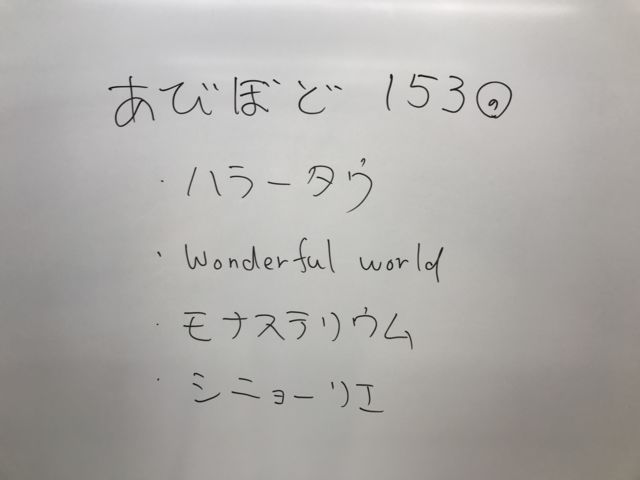 あびぼど 153の
・ハラータウ
・Wonderful world
・モナステリウム
・シニョーリエ